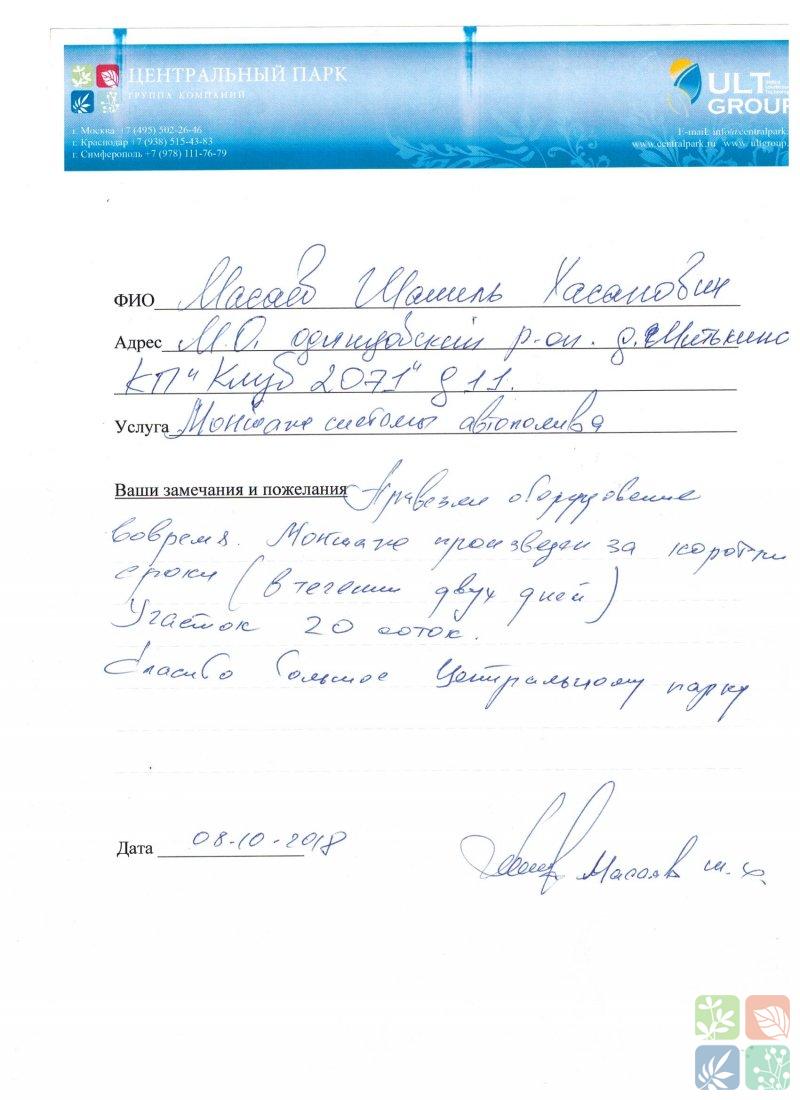 ЦЕНТРАЛЬНЫЙ ПАРК
ГРУППА КОМПАНИЙ
ULT
GROUP
г. Москва +7 (495) 502-26-46
г. Краснодар +7 (938) 515-43-83
г. Симферополь +7 (978) 111-76-79
E-mail: info@centralpark.
www.centralpark.ru www. ultgroup.
ФИО Масаев Шамиль Хасанович
Адрес М.О. одинцовский р-он. д. Митькино
КП "Клуб 2071" д 11.
Услуга Монтаж системы автополива
Ваши замечания и пожелания Привезли оборудование
вовремя. Монтаж произведен за коротки
сроки (в течении двух дней)
Участок 20 соток.
Спасибо большое Центральному парку
Дата 08-10-2018
Масаев Ш.Х.